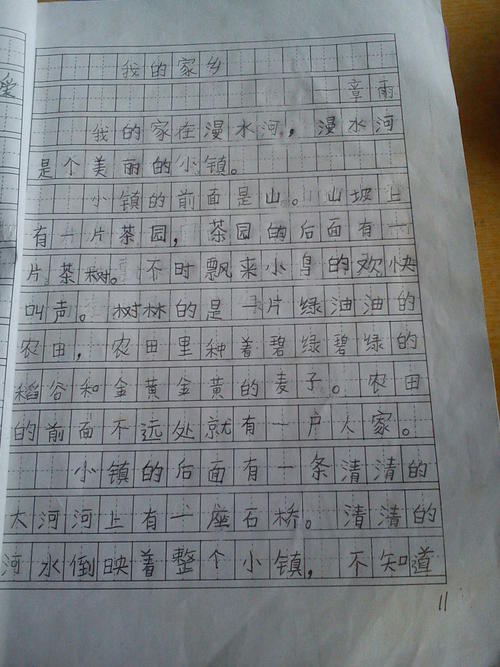 我的家乡
章雨
我的家在漫水河，漫水河
是个美丽的小镇。
小镇的前面是山。山坡上
有一片茶园，茶园的后面有一
片茶树。不时飘来小鸟的欢快
叫声。树林的是一片绿油油的
农田，农田里种着碧绿碧绿的
稻谷和金黄金黄的麦子。农田
的前面不远处就有一户人家。
小镇的后面有一条清清的
大河河上有一座石桥。清清的
河水倒映着整个小镇，不知道
11